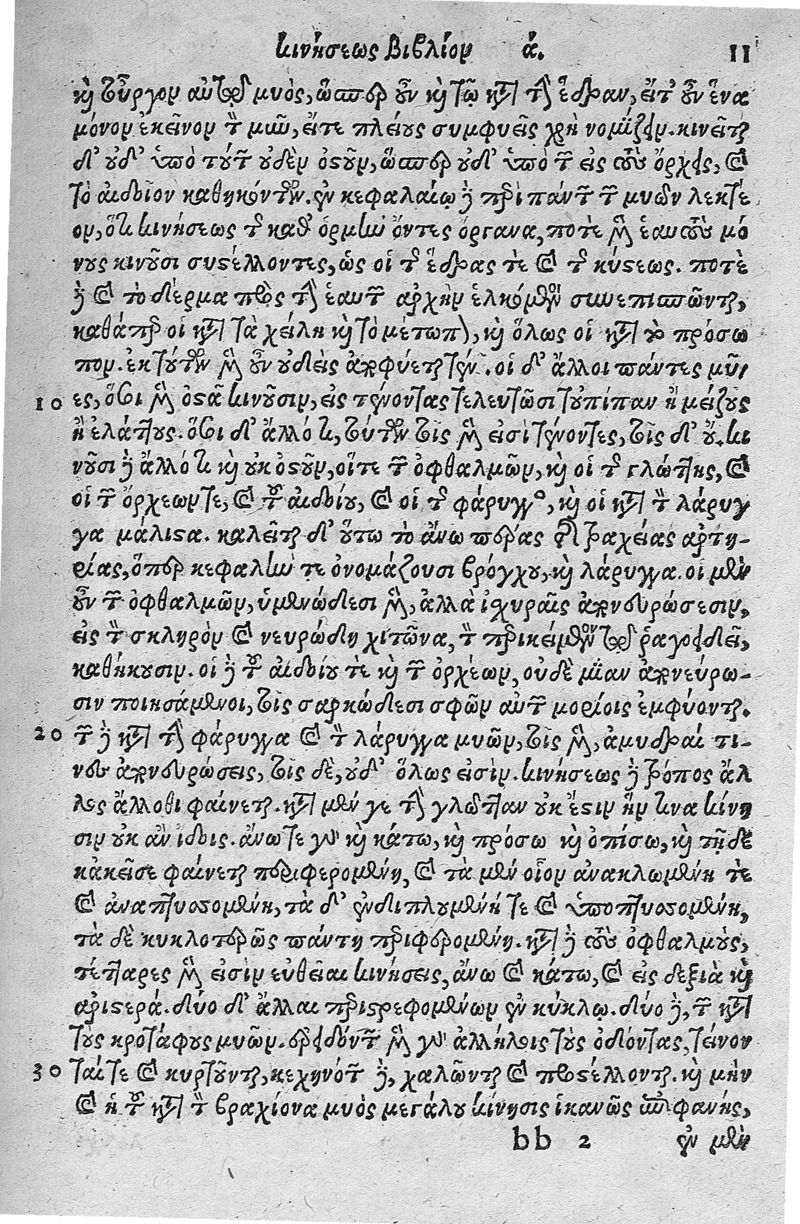 κινήσεως βιβλίον ά. 11
καὶ τοὖργον αὐτοῦ μυὸς, ὥσπερ οὖν καὶ τῷ κατὰ τὴν ἕδραν, εἴτ' οὖν ἕνα
μόνον ἐκεῖνον τὸν μῦν, εἴτε πλείους συμφυεῖς χρὴ νομίζειν. κινεῖται
δ' οὐδ' ὑπὸ τούτων οὐδὲν ὀστοῦν, ὥσπερ οὐδ' ὑπὸ τῶν εἰς τοὺς ὄρχεις, καὶ
τὸ αἰδοῖον καθηκόντων. ἐν κεφαλαίῳ δὲ περὶ πάντων τῶν μυῶν λεκτέ
ον, ὅτι κινήσεως τῆς καθ' ὁρμὴν ὄντες ὄργανα, ποτὲ μὲν ἑαυτοὺς μό
νους κινοῦσι συστέλλοντες, ὡς οἱ τῆς ἕδρας τε καὶ τῆς κύστεως. ποτὲ
δὲ καὶ τὸ δέρμα πρὸς τὴν ἑαυτῶν ἀρχὴν ἑλκόμενοι συνεπισπῶνται,
καθάπερ οἱ κατὰ τὰ χείλη καὶ τὸ μέτωπον, καὶ ὅλως οἱ κατὰ τὸ πρόσω
πον. ἐκ τούτων μὲν οὖν οὐδεὶς ἀποφύεται τένων. οἱ δ' ἄλλοι πάντες μῦ-
10 ες, ὅσοι μὲν ὀστᾶ κινοῦσιν, εἰς τένοντας τελευτῶσι τοὐπίπαν ἢ μείζους
ἢ ἐλάττους. ὅσοι δ' ἄλλό τι, τούτων τοῖς μὲν εἰσὶ τένοντες, τοῖς δ' οὔ. κι
νοῦσι δὲ ἄλλό τι καὶ οὐκ ὀστοῦν, οἵτε τῶν ὀφθαλμῶν, καὶ οἱ τῆς γλώττης, καὶ
οἱ τῶν ὄρχεων τε, καὶ τοῦ αἰδοίου, καὶ οἱ τῆς φάρυγγος, καὶ οἱ κατὰ τὸν λάρυγ
γα μάλιστα. καλεῖται δ' οὕτω τὸ ἄνω πέρας τῆς τραχείας ἀρτη-
ρίας, ὅπερ κεφαλήν τε ὀνομάζουσι βρόγχου, καὶ λάρυγγα. οἱ μὲν
οὖν τῶν ὀφθαλμῶν, ὑμενώδεσι μὲν, ἀλλὰ ἰχυραῖς ἀπονευρώσεσιν,
εἰς τὸν σκληρὸν καὶ νευρώδη χιτῶνα, τὸν περικείμενον τῷ ῥαγοειδεῖ,
καθήκουσιν. οἱ δὲ τοῦ αἰδοίου τε καὶ τῶν ὀρχέων, οὐδὲ μίαν ἀπονεύρω-
σιν ποιησάμενοι, τοῖς σαρκώδεσι σφῶν αὐτῶν μορίοις ἐμφύονται.
20 τῶν δὲ κατὰ τὴν φάρυγγα καὶ τὸν λάρυγγα μυῶν, τοῖς μὲν, ἀμυδραί τι-
νες ἀπονευρώσεις, τοῖς δὲ, οὐδ' ὅλως εἰσὶν. κινήσεως δὲ τρόπος ἄλ
λος ἄλλοθι φαίνεται. κατὰ μέν γε τὴν γλῶτταν οὐκ ἔστιν ἥν τινα κίνη
σιν οὐκ ἂν ἴδοις. ἄνω τε γὰρ καὶ κάτω, καὶ πρόσω καὶ ὀπίσω, καὶ τῇδε
κἀκεῖσε φαίνεται περιφερομένη, καὶ τὰ μὲν οἷον ἀνακλωμένη τε
καὶ ἀναπτυοσομένη, τὰ δ' ἐνδιπλουμένή τε καὶ ὑποπτυοσομένη,
τὰ δὲ κυκλοτερῶς πάντη περιφερομένη. κατὰ δὲ τοὺς ὀφθαλμοὺς,
τέτταρες μὲν εἰσὶν εὐθεῖαι κινήσεις, ἄνω καὶ κάτω, καὶ εἰς δεξιὰ καὶ
ἀριστερά. δύο δ' ἄλλαι περιστρεφομένων ἐν κύκλῳ. δύο δὲ, τῶν κατὰ
τοὺς κροτάφους μυῶν. ἐρειδόντων μὲν γὰρ ἀλλήλοις τοὺς ὀδόντας, τείνον
30 ταί τε καὶ κυρτοῦνται, κεχηνότων δὲ, χαλῶνται καὶ προστέλλονται. καὶ μὴν
καὶ ἡ τοῦ κατὰ τὸν βραχίονα μυὸς μεγάλου κίνησις ἱκανῶς ἐπιφανής,
bb 2 ἐν μὲν